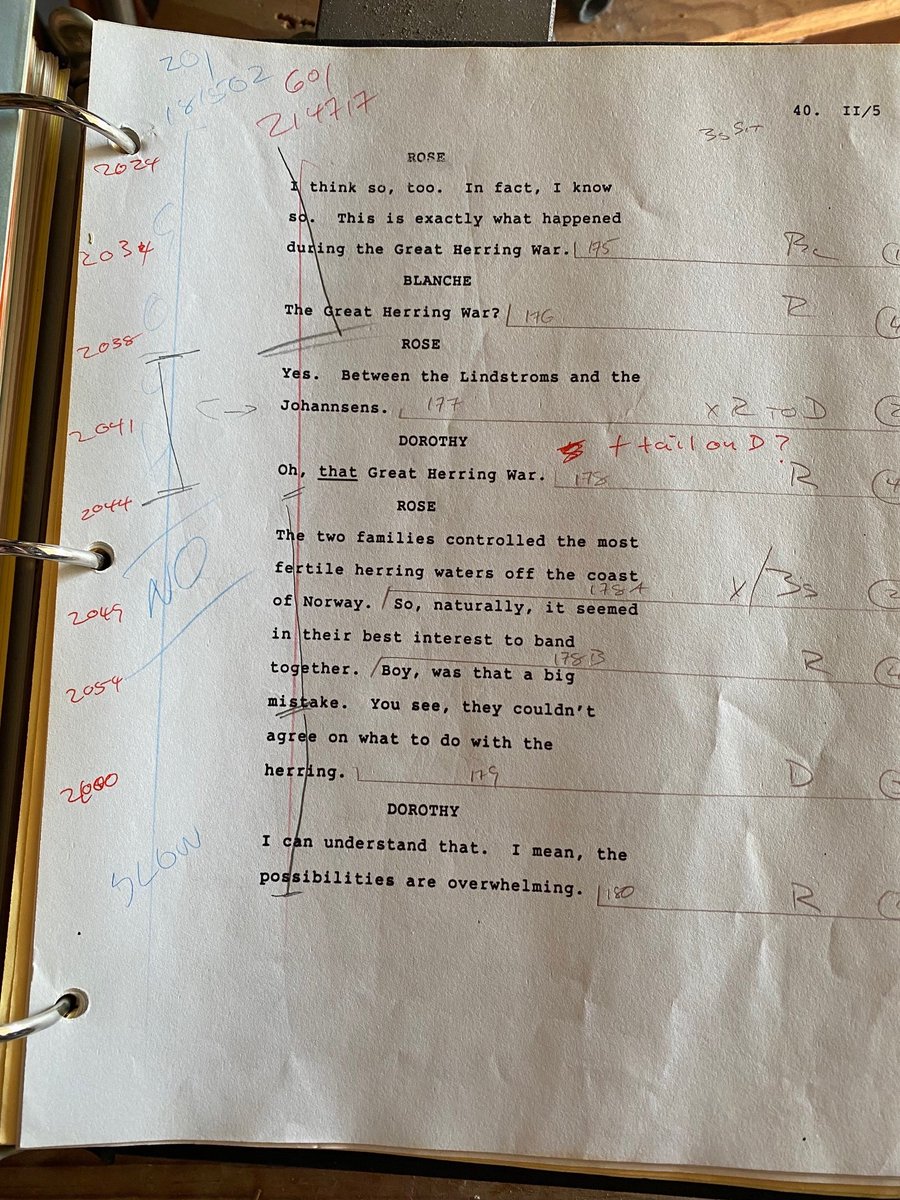 201
181502
601
214717
40. II/5
3s SIT
ROSE
2024
I think so, too. In fact, I know
so. This is exactly what happened
2034
during the Great Herring War. 175
BLANCHE
The Great Herring War? 176 R
2038
ROSE
Yes. Between the Lindstroms and the
2041
Johannsens. 177 x 2 TO D
DOROTHY
+ tail on D?
Oh, that Great Herring War. 178 R
2044
ROSE
The two families controlled the most
NO
fertile herring waters off the coast
178A x/3s
2049
of Norway. So, naturally, it seemed
in their best interest to band
178B R
2054
together. Boy, was that a big
mistake. You see, they couldn't
agree on what to do with the
2060
herring. 179 D
DOROTHY
SLOW
I can understand that. I mean, the
possibilities are overwhelming. 180 R